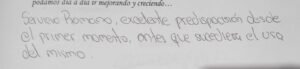 podamos día a día ir mejorando y creciendo...
Servicio Romano, excelente predisposición desde
el primer momento, antes que sucediera el uso
del mismo.